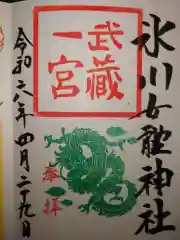 氷川女體神社
武藏
一宮
奉拝
令和六年四月二十九日